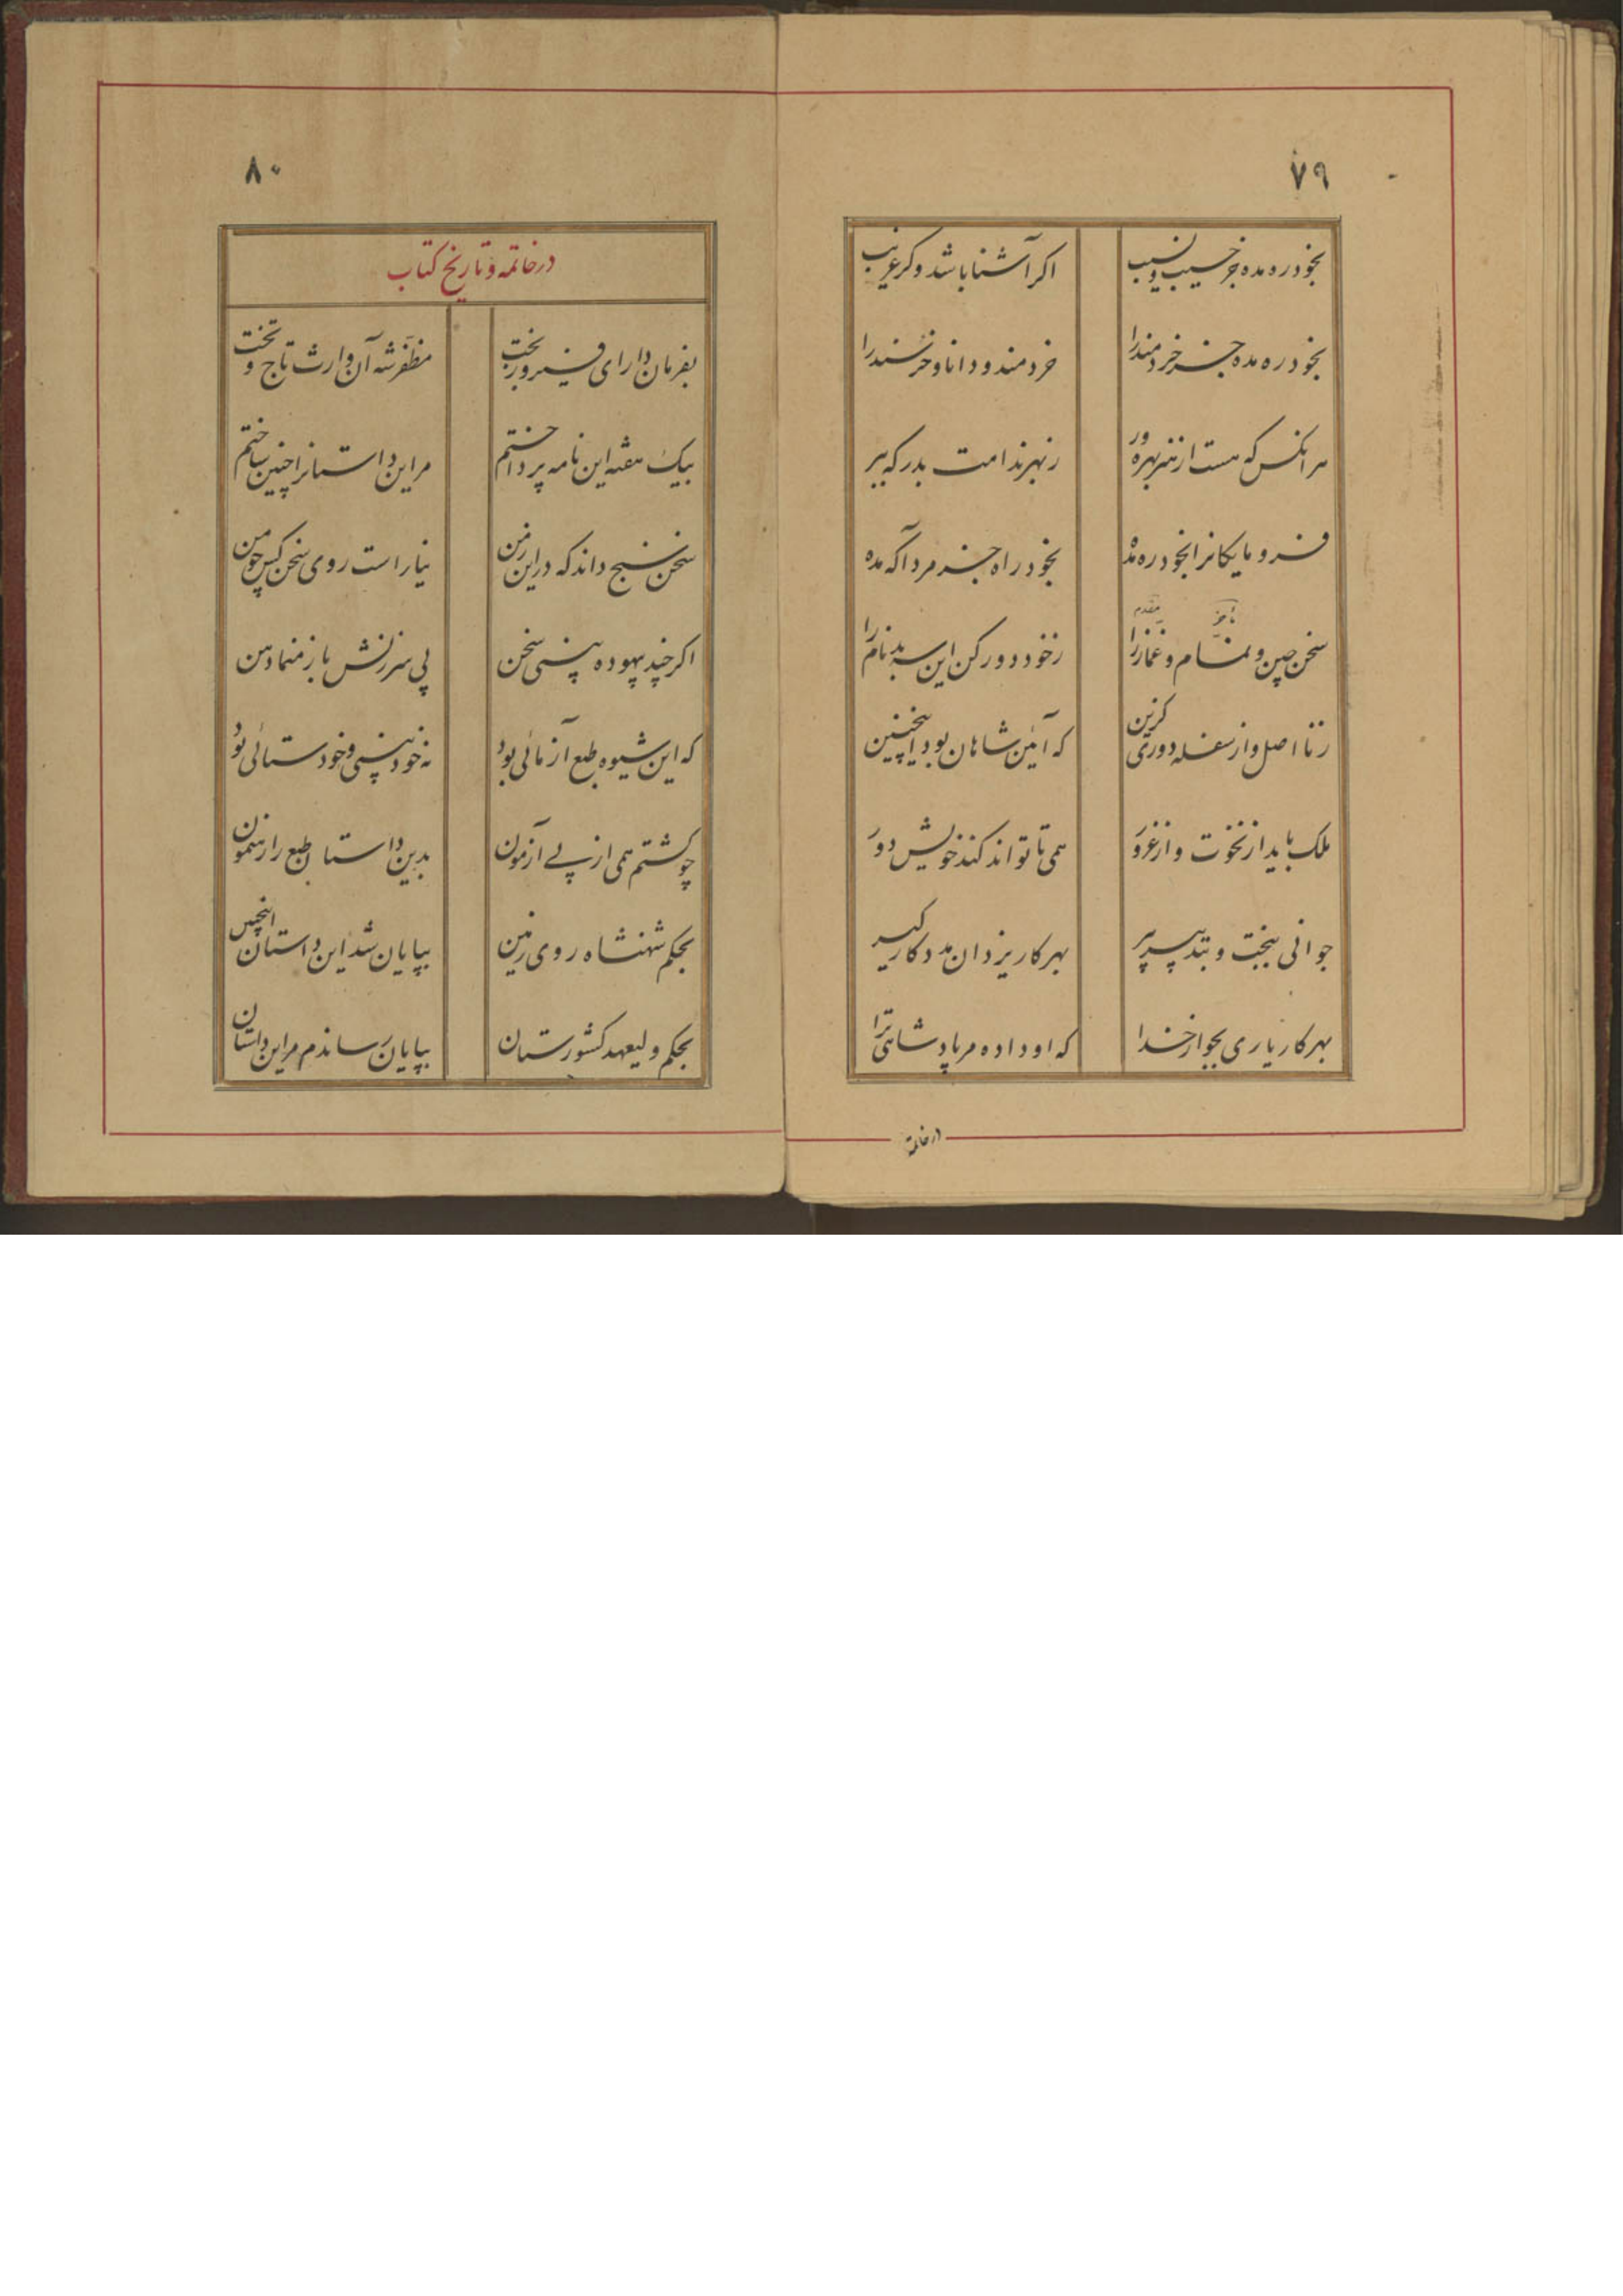 ۷۹
بخود ره مده جز حسیب و نسیب
اکر آشنا باشد و کر غریب
بخود ره مده جز خردمند را
خردمند و دانا و خرسند را
هر انکس که هست از هنر بهره ور
ز بهر ندامت بدرکه ببر
فرومایکانرا بخود ره مده
بخود راه جز مرد آکه مده
مؤخر مقدم
سخن چین و نمام و غماز را
ز خود دور کن این سه بدنام را
ز نا اصل و از سفله دوری کزین
که آئین شاهان بود اینچنین
ملک باید از نخوت و از غرور
همی تا تواند کند خویش دور
جوانی ببخت و بتدبیر پیر
بهر کار یزدان مددکار کیر
بهر کار یاری بجو از خدا
که او داده مر پادشاهی ترا
در خاتمة
۸۰
در خاتمه و تاریخ کتاب
بفرمان دارای فیروز بخت
مظفر شه آن وارث تاج و تخت
بیک هفته این نامه پرداختم
مر این داستانرا چنین ساختم
سخن سنج داند که در این زمن
نیاراست روی سخن کس چو من
اکر چند بیهوده بینی سخن
پی سرزنش باز منما دهن
که این شیوه طبع آزمائی بود
نه خودبینی و خودستائی بود
چو کشتم همی از پے آزمون
بدین داستان طبع را رهنمون
بحکم شهنشاه روی زمین
بپایان شد این داستان اینچنین
بحکم ولیعهد کشورستان
بپایان رساندم مر این داستان